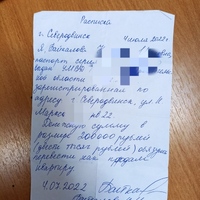 Расписка
г. Северодвинск 4 июля 2022 г
Я, Байкалова
паспорт серия
выдан УМВД
кой области
зарегистрированная по
адресу г. Северодвинск, ул К
Маркса кв. 22
Денежную сумму в
размере 200000 рублей
(двести тысяч рублей) обязуюсь
перевести как продам
квартиру
4.07.2022